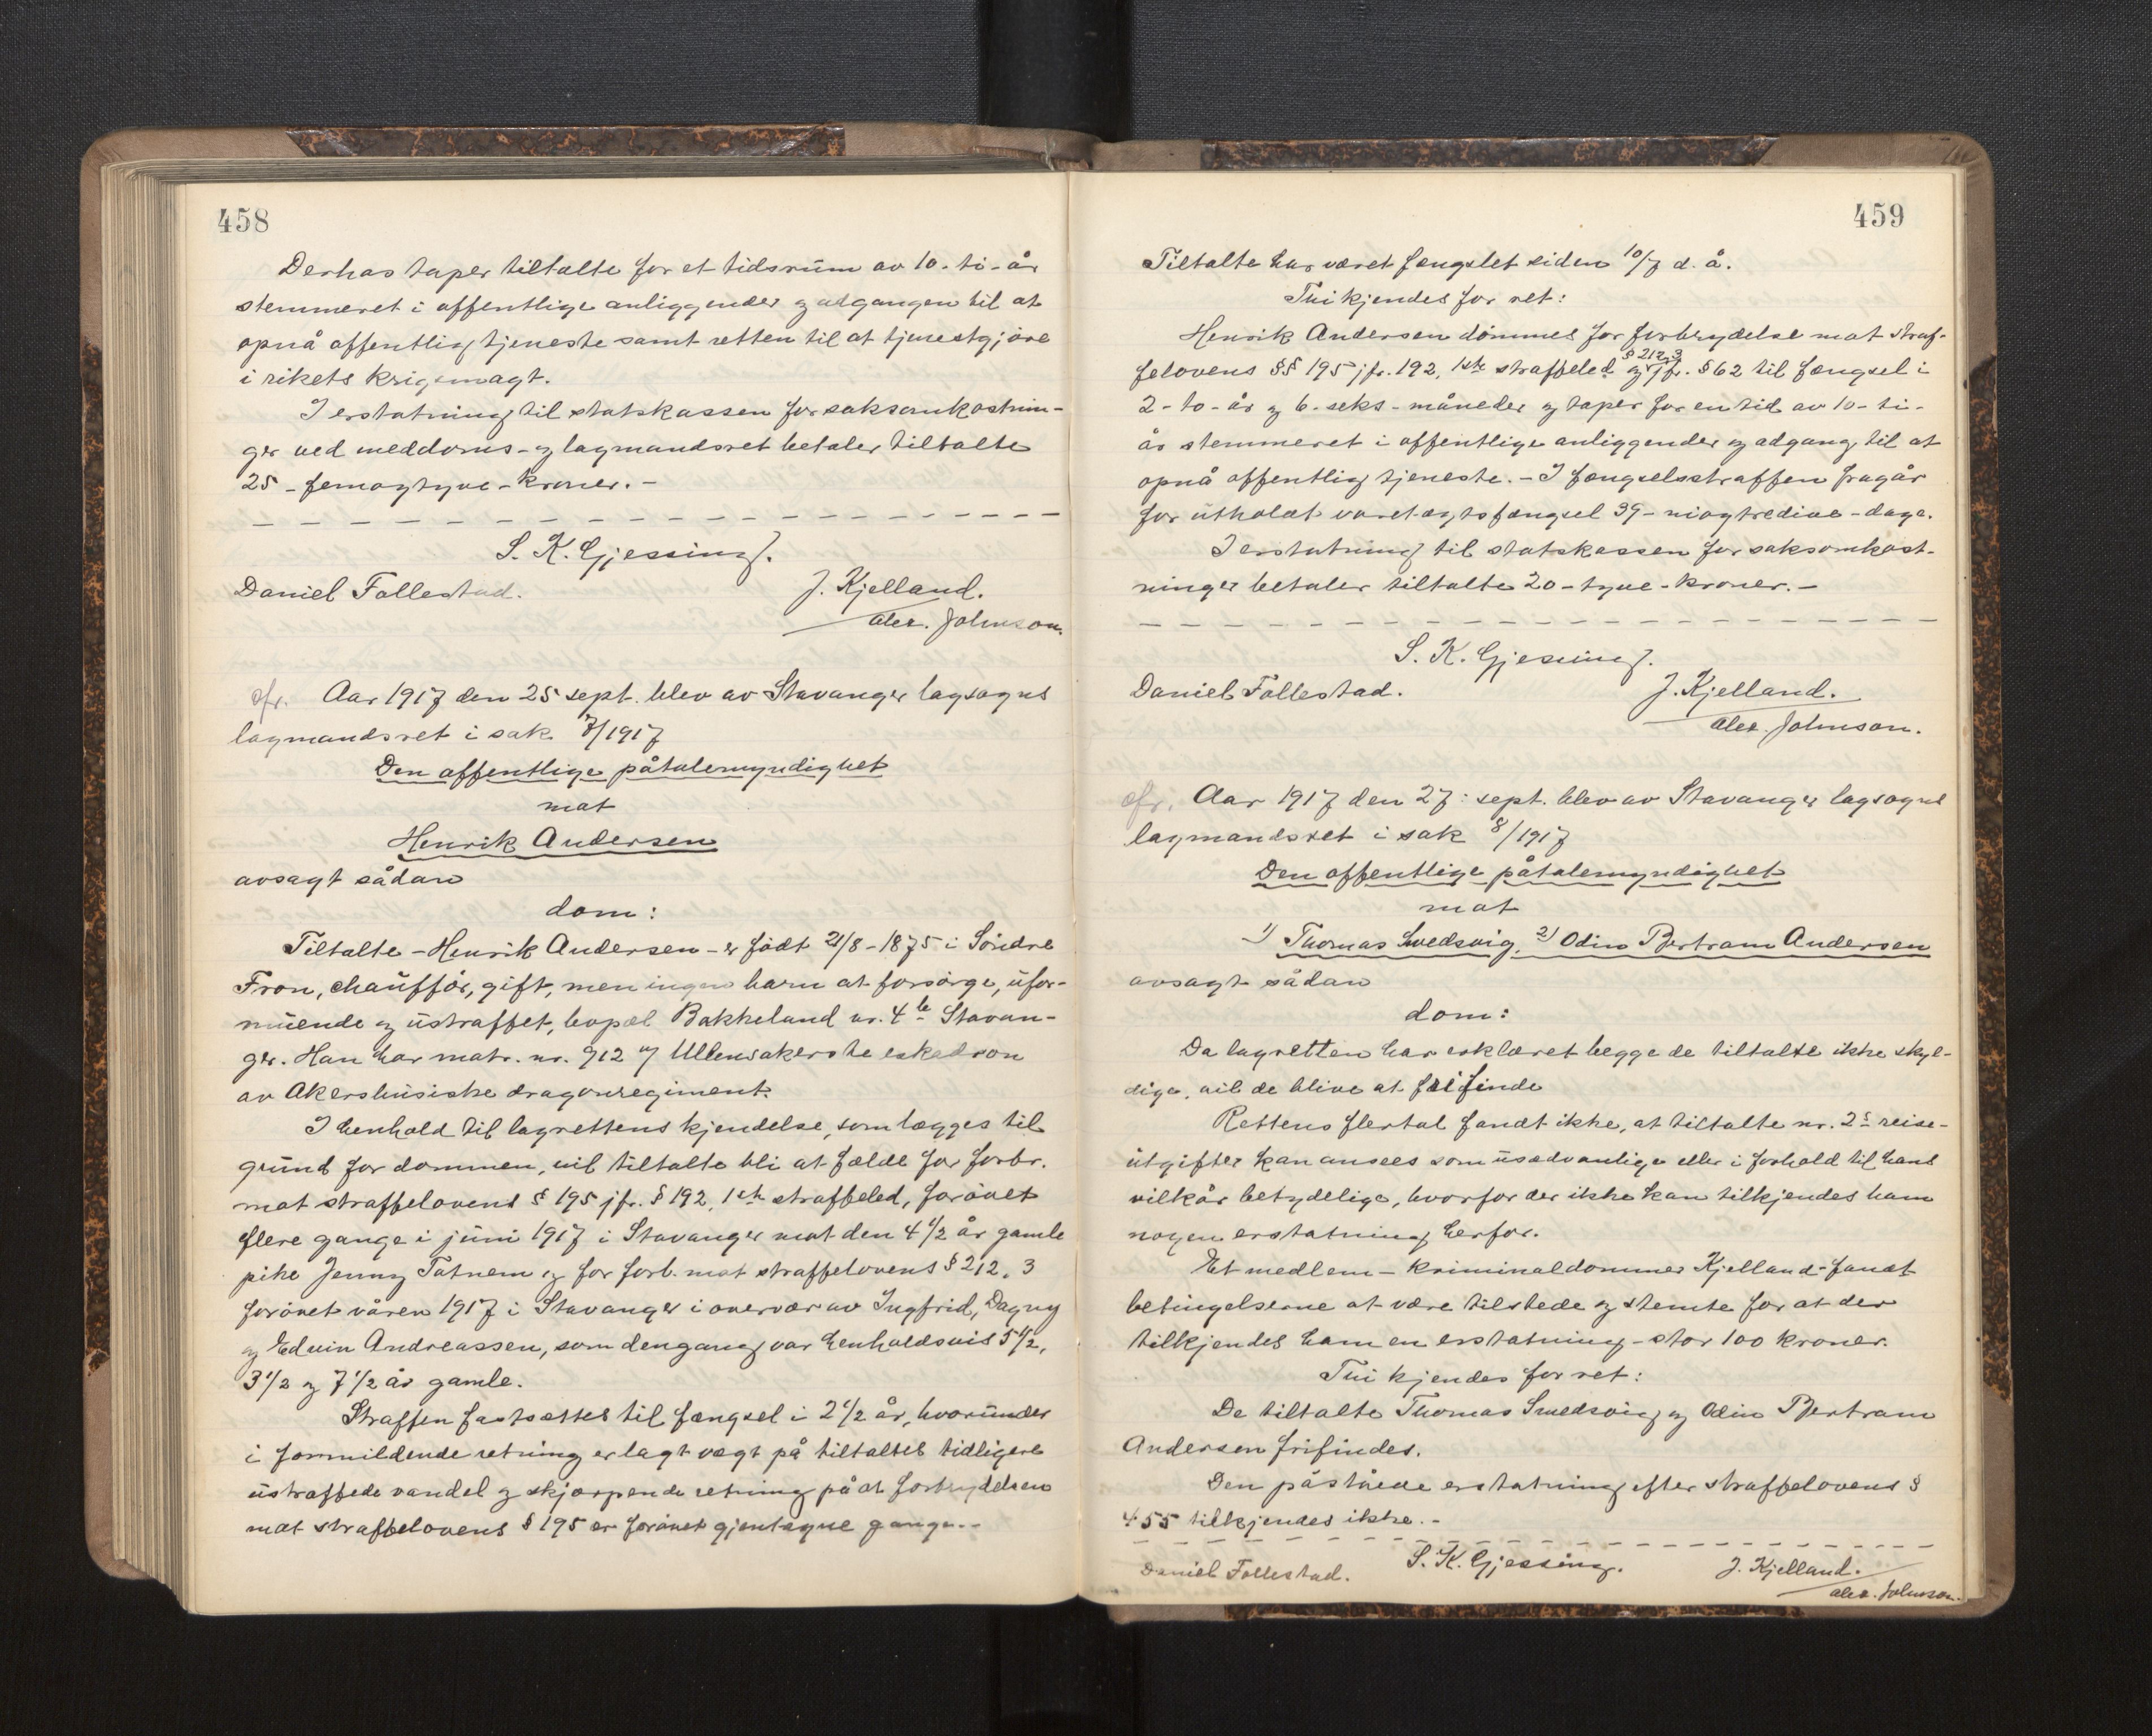 458
Derhos taper tiltalte for et tidsrum av 10-ti-år
stemmeret i offentlige anliggender og adgangen til at
opnå offentlig tjeneste samt retten til at tjenestgjöre
i rikets krigsmagt.
I erstatning til statskassen for saksomkostnin-
ger ved meddoms- og lagmandsret betaler tiltalte
25 - femogtyve - kroner. -
S. K. Gjessing.
Daniel Follestad. J. Kjelland.
Alex. Johnson.
cfr. Aar 1917 den 25 sept. blev av Stavanger lagsogns
lagmandsret i sak 7/1917
Den offentlige påtalemyndighet
mot
Henrik Andersen
avsagt sådan
dom:
Tiltalte - Henrik Andersen - er födt 21/8 - 1875 i Söndre
Fron, chaufför, gift, men ingen barn at forsörge, ufor-
muende og ustraffet, bopæl Bakkeland nr. 4 b Stavan-
ger. Han har matr. nr. 912 og Ullensakerske eskadron
av Akershusiske dragonregiment.
I henhold til lagrettens kjendelse, som lægges til
grund for dommen, vil tiltalte bli at fælde for forbr.
mot straffelovens § 195 jfr. § 192, 1ste straffeled, forövet
flere gange i juni 1917 i Stavanger mot den 4 1/2 år gamle
pike Jenny Tatnem og for forb. mot straffelovens § 212, 3
forövet våren 1917 i Stavanger i overvær av Ingfrid, Dagny
og Edvin Andreassen, som dengang var henholdsvis 5 1/2,
3 1/2 og 7 1/2 år gamle.
Straffen fastsættes til fængsel i 2 1/2 år, hvorunder
i formildende retning er lagt vægt på tiltaltes tidligere
ustraffede vandel og skjærpende retning på at forbrydelsen
mot straffelovens § 195 er forövet gjentagne gange. -
459
Tiltalte har været fængslet siden 10/7 d. å.
Thi kjendes for ret:
Henrik Andersen dömmes for forbrydelse mot straf-
§ 212, 3
felovens §§ 195 jfr. 192, 1ste straffeled og jfr. § 62 til fængsel i
2 - to - år og 6 - seks - måneder og taper for en tid av 10 - ti -
år stemmeret i offentlige anliggender og adgang til at
opnå offentlig tjeneste. - I fængselsstraffen fragår
for utholdt varetægtsfængsel 39 - niogtredive - dage.
I erstatning til statskassen for saksomkost-
ninger betaler tiltalte 20 - tyve - kroner. -
S. K. Gjessing.
Daniel Follestad. J. Kjelland.
Alex. Johnson.
cfr. Aar 1917 den 27: sept. blev av Stavanger lagsogns
lagmandsret i sak 8/1917
Den offentlige påtalemyndighet
mot
1) Thomas Svedsvig, 2) Odin Bertram Andersen
avsagt sådan
dom:
Da lagretten har erklæret begge de tiltalte ikke skyl-
dige, vil de blive at frifinde
Rettens flertal fandt ikke, at tiltalte nr. 2s reise-
utgifter kan ansees som usedvanlige eller i forhold til hans
vilkår betydelige, hvorfor der ikke kan tilkjendes ham
nogen erstatning herfor.
Et medlem - kriminaldommer Kjelland - fandt
betingelserne at være tilstede og stemte for at der
tilkjendes ham en erstatning - stor 100 kroner.
Thi kjendes for ret:
De tiltalte Thomas Svedsvig og Odin Bertram
Andersen frifindes.
Den påståede erstatning efter straffelovens §
455 tilkjendes ikke. -
Daniel Follestad. S. K. Gjessing. J. Kjelland.
Alex. Johnson.